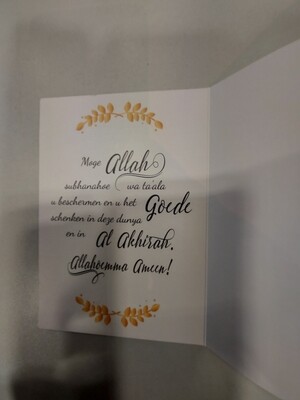 Moge Allah
subhanahoe wa ta'ala
u beschermen en u het Goede
schenken in deze dunya
en in Al Akhirah.
Allahoemma Ameen!